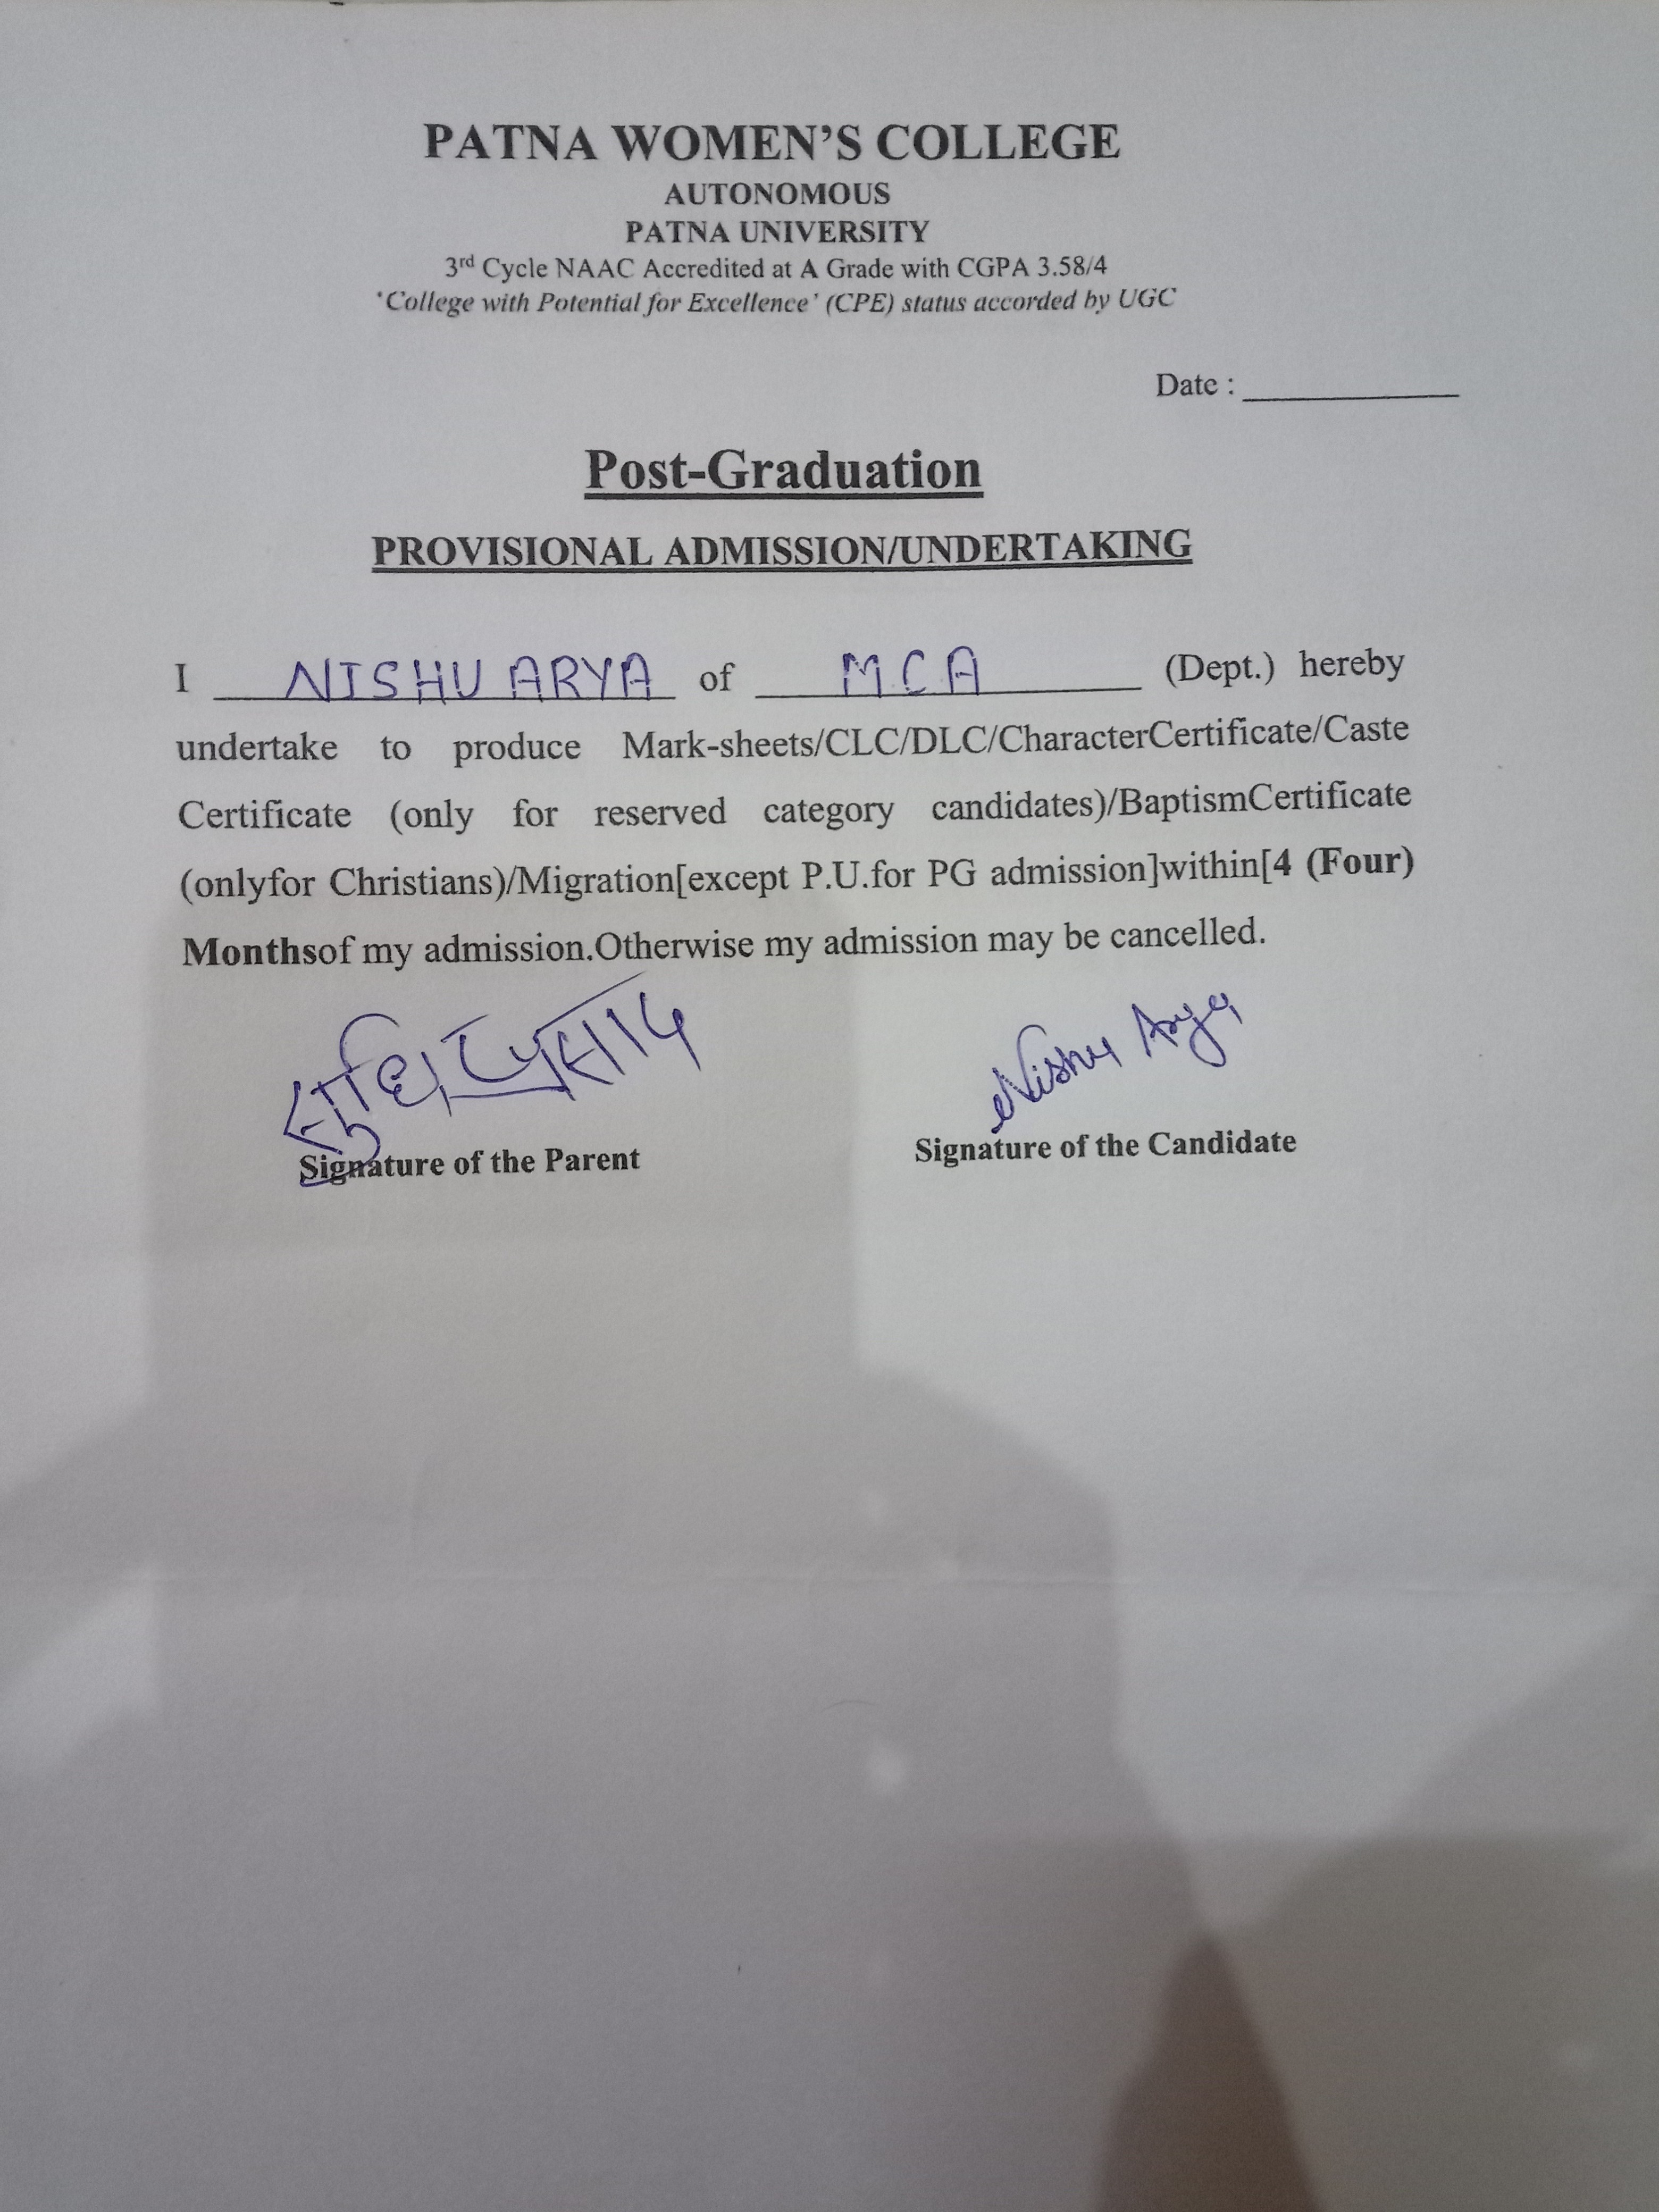 PATNA WOMEN'S COLLEGE
AUTONOMOUS
PATNA UNIVERSITY
3rd Cycle NAAC Accredited at A Grade with CGPA 3.58/4
'College with Potential for Excellence' (CPE) status accorded by UGC
Date : ____________
Post-Graduation
PROVISIONAL ADMISSION/UNDERTAKING
I NISHU ARYA of MCA (Dept.) hereby
undertake to produce Mark-sheets/CLC/DLC/CharacterCertificate/Caste
Certificate (only for reserved category candidates)/BaptismCertificate
(onlyfor Christians)/Migration[except P.U.for PG admission]within[4 (Four)
Monthsof my admission.Otherwise my admission may be cancelled.
प्रसाद Nishu Arya
Signature of the Parent Signature of the Candidate